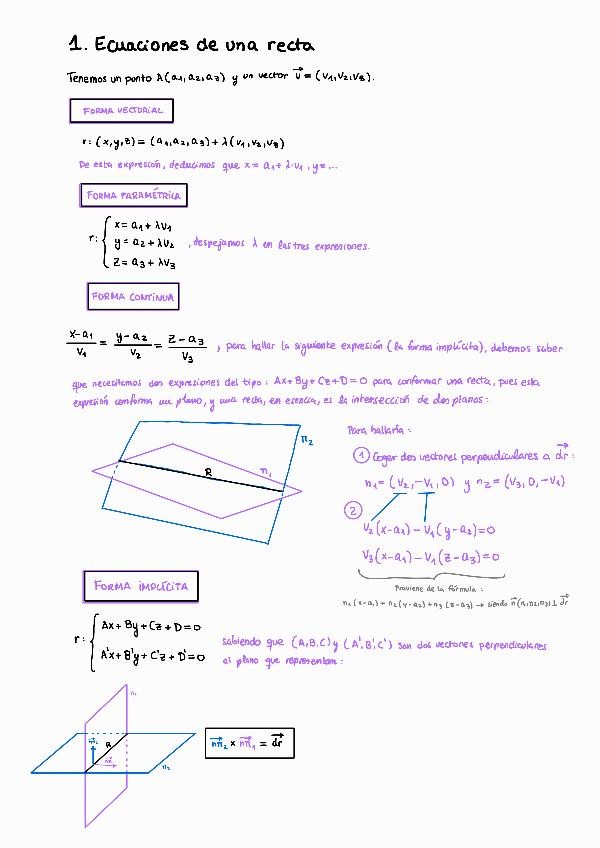 1. Ecuaciones de una recta
Tenemos un punto A(a₁,a₂,a₃) y un vector v⃗ = (v₁,v₂,v₃).
FORMA VECTORIAL
r: (x,y,z) = (a₁,a₂,a₃) + λ(v₁,v₂,v₃)
De esta expresión, deducimos que x = a₁ + λ·v₁ , y = ...
FORMA PARAMÉTRICA
r: { x = a₁ + λv₁
y = a₂ + λv₂ , despejamos λ en las tres expresiones.
z = a₃ + λv₃
FORMA CONTINUA
(x-a₁)/v₁ = (y-a₂)/v₂ = (z-a₃)/v₃ , para hallar la siguiente expresión (la forma implícita), debemos saber
que necesitamos dos expresiones del tipo: Ax+By+Cz+D=0 para conformar una recta, pues esta
expresión conforma un plano, y una recta, en esencia, es la intersección de dos planos:
π₂
R
π₁
Para hallarla:
① Coger dos vectores perpendiculares a dr⃗ :
n₁ = (v₂,-v₁,0) y n₂ = (v₃,0,-v₁)
②
v₂(x-a₁) - v₁(y-a₂) = 0
v₃(x-a₁) - v₁(z-a₃) = 0
Proviene de la fórmula:
n₁(x-a₁) + n₂(y-a₂) + n₃(z-a₃) → siendo n⃗(n₁,n₂,n₃) ⊥ dr⃗
FORMA IMPLÍCITA
r: { Ax + By + Cz + D = 0
A'x + B'y + C'z + D' = 0
sabiendo que (A,B,C) y (A',B',C') son dos vectores perpendiculares
al plano que representan:
π₁
R
π₂
nπ⃗₂ × nπ⃗₁ = dr⃗